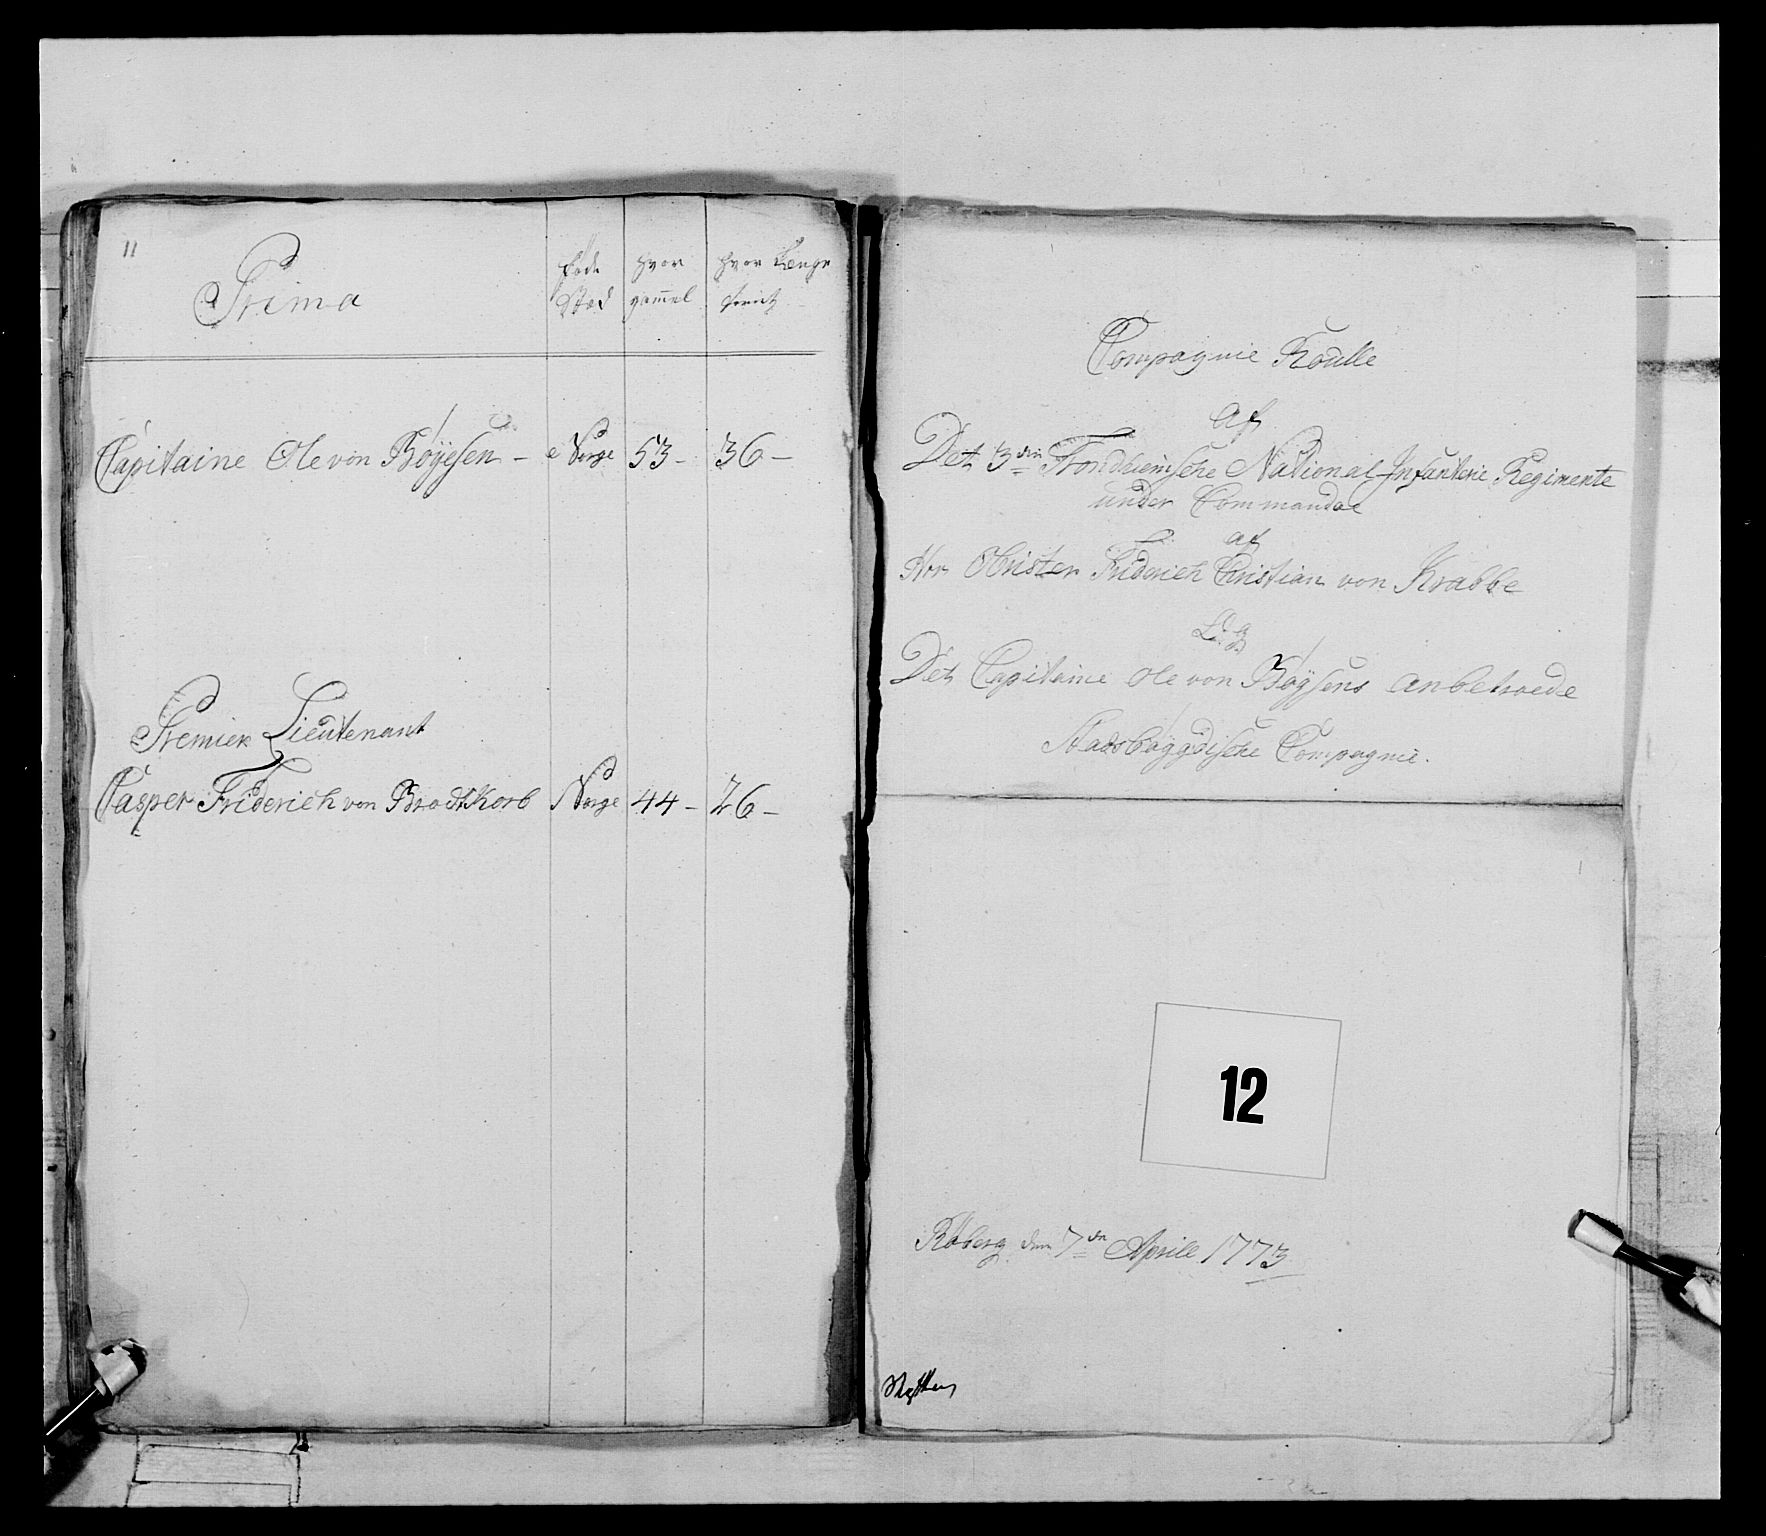 11
Prima
føde
Stæd
hvor
gam̄el
hvor Længe
tient
Capitaine Ole von Bøÿesen - Norge 53 - 36 -
Premier Lieutenant
Casper Friderich von Brodtkorb Norge 44 - 26 -
Compagnie Roulle
af
Det 3die Trondhiemsche National Infanterie Regimente
under Commando
af
Hrr Obrister Friderich Christian von Krabbe
Det Capitaine Ole von Bøÿsens anbetroede
Stadsbøÿgdische Compagnie.
12
Røberg den 7de Aprile 1773